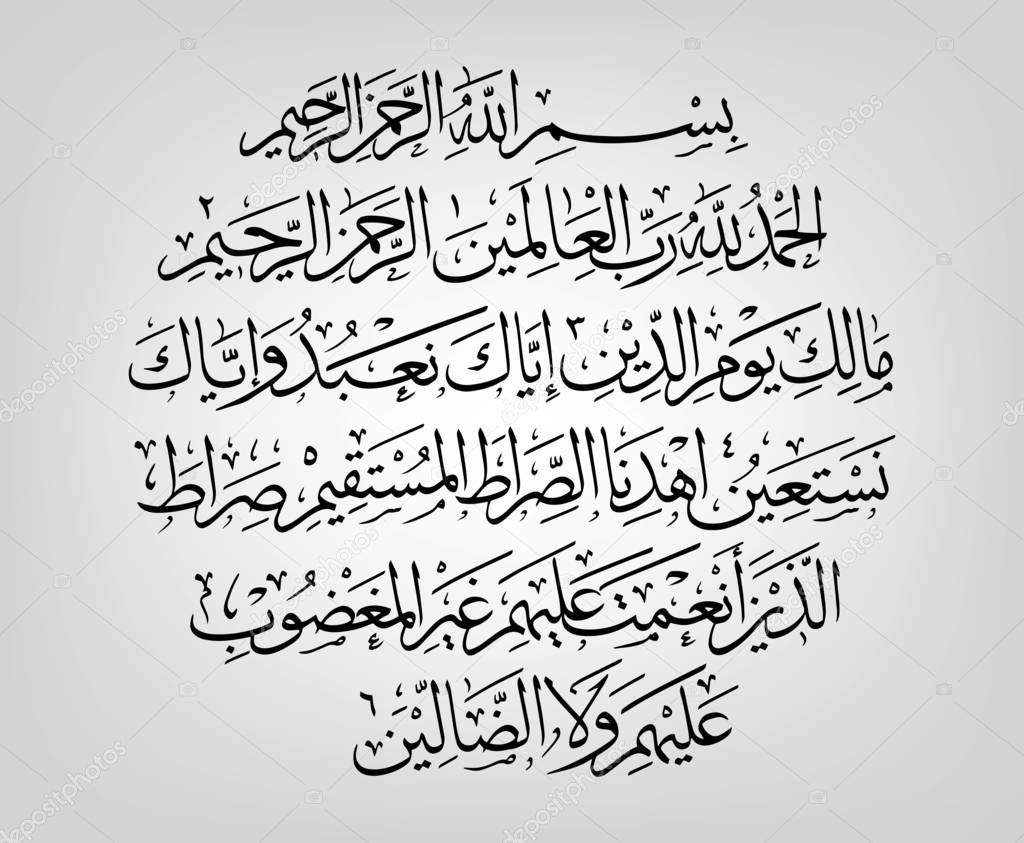 بِسْمِ اللَّهِ الرَّحْمَٰنِ الرَّحِيمِ
الْحَمْدُ لِلَّهِ رَبِّ الْعَالَمِيْنَ ١ الرَّحْمَٰنِ الرَّحِيْمِ ٢
مَالِكِ يَوْمِ الدِّيْنِ ٣ إِيَّاكَ نَعْبُدُ وَإِيَّاكَ
نَسْتَعِيْنُ ٤ اهْدِنَا الصِّرَاطَ الْمُسْتَقِيْمَ صِرَاطَ
الَّذِيْنَ أَنْعَمْتَ عَلَيْهِمْ غَيْرِ الْمَغْضُوْبِ
عَلَيْهِمْ وَلَا الضَّالِّيْنَ ٦
depositphotos